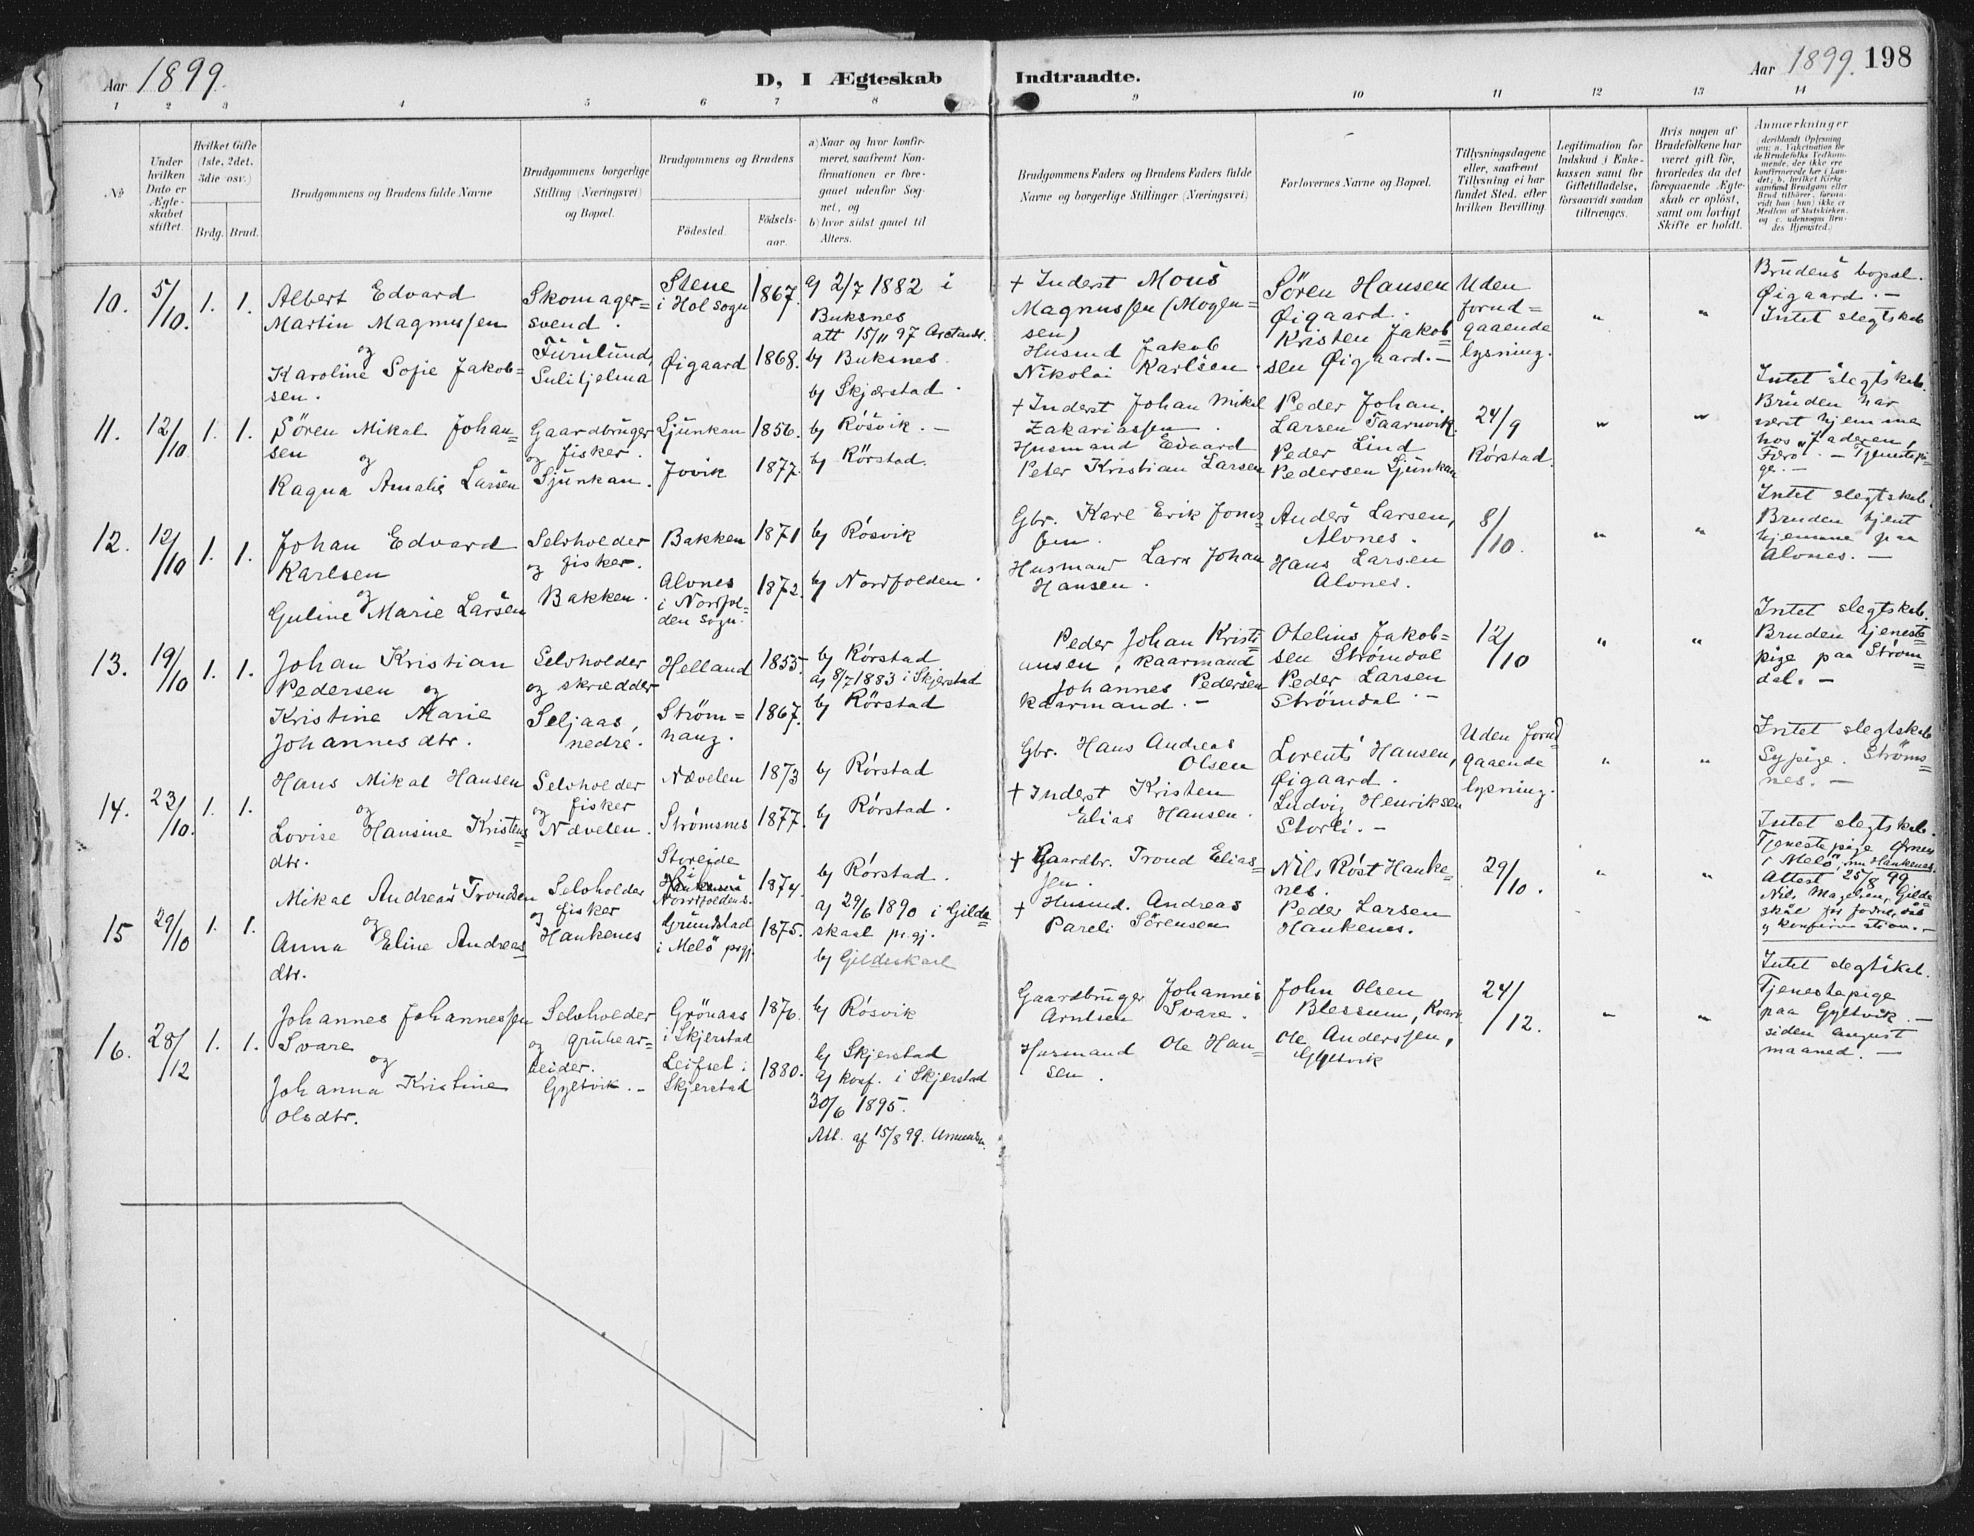 Aar 1899.
D, I Ægteskab
Indtraadte.
Aar 1899. 198
1 2 3 4 5 6 7 8 9 10 11 12 13 14
№
Under hvilken Dato er Ægte-skabet stiftet.
Hvilket Gifte (1ste, 2det, 3die osv.)
Brdg. Brud.
Brudgommens og Brudens fulde Navne
Brudgommens borgerlige Stilling (Næringsvei) og Bopæl.
Brudgommens og Brudens
Fødested.
Fødsels-aar.
a) Naar og hvor konfir-meret, saafremt Kon-firmationen er fore-gaaet udenfor Sog-net, og
b) hvor sidst gaaet til Alters.
Brudgommens Faders og Brudens Faders fulde Navne og borgerlige Stillinger (Næringsvei)
Forlovernes Navne og Bopæl.
Tillysningsdagene eller, saafremt Tillysning ei har fundet Sted, efter hvilken Bevilling.
Legitimation for Indskud i Enke-kassen samt for Giftetilladelse, forsaavidt saadan tiltrænges.
Hvis nogen af Brudefolkene har været gift før, hvorledes da det foregaaende Ægte-skab er opløst, samt om lovligt Skifte er holdt.
Anmærkninger
10. 5/10. 1. 1.
Albert Edvard
Martin Magnussen
og
Karoline Sofie Jakob-
sen.
Skomager-
svend.
Furulund,
Sulitjelma
Stene
i Hol sogn
Øigaard
1867.
1868.
a) 2/7 1882 i
Buksnes
att 15/11 97
b) Buksnes.
b) Skjærstad.
+ Inderst Mons
Magnussen (Mogen-
sen)
Husmd Jakob
Nikolai Karlsen.
Sören Hansen
Øigaard.
Kristen Jakob
sen Øigaard. —
Uden
forud-
gaaende
lysning.
" "
Brudens bopæl.
Øigaard. —
Intet slegtskab
11. 12/10 1. 1.
Sören Mikal Johan-
sen
og
Ragna Amalie Larsen
Gaardbruger
og fisker.
Sjunkan.
Sjunkan
Jovik
1856.
1877.
b) Rösvik. —
b) Rörstad.
+ Inderst Johan Mikal
Zakariassen.
Husmand Edvard
Peter Kristian Larsen
Peder Johan
Larsen Taarnvik.
Peder Lind
Pedersen Sjunkan
24/9
Rörstad.
" "
Intet slegtskab.
Bruden har
været hjemme
hos faderen,
— Tjenestepi-
ge. —
12. 12/10 1. 1.
Johan Edvard
Karlsen
og
Guline Marie Larsen
Selvholder
og fisker.
Bakken.
Bakken
Alvnes
i Nordfol-
den sogn.
1871
1872.
b) Rösvik
b) Nordfolden.
Gbr. Karl Erik Jons-
sen.
Husmand Lars Johan
Hansen.
Anders Larsen,
Alvnes.
Hans Larsen
Alvnes.
8/10.
" "
Intet slegtskab.
Bruden tjent
hjemme paa
Alvnes. —
13. 19/10 1. 1.
Johan Kristian
Pedersen og
Kristine Marie
Johannesdtr.
Selvholder
og skrædder
Seljaas,
nedre.
Helland
Ström=
haug.
1855.
1867.
b) Rörstad
a) 8/7 1883 i Skjerstad
b) Rörstad
Peder Johan Kristi-
ansen, kaarmand
Johannes Pedersen
kaarmand. —
Otelius Jakob-
sen Strömdal
Peder Larsen
Strömdal. —
12/10
" "
Intet slegtskab.
Bruden tjeneste
pige paa Ström-
dal. —
14. 23/10. 1. 1.
Hans Mikal Hansen
og
Lovise Hansine Kristens
dtr.
Selvholder
og fisker
Nævelen.
Nævelen
Strömsnes
1873
1877.
b) Rörstad
b) Rörstad.
Gbr. Hans Andreas
Olsen
+ Inderst Kristen
Elias Hansen.
Lorents Hansen,
Øigaard.
Ludvig Henriksen
Storli. —
Uden forud
gaaende
lysning.
" "
Intet slegtskab
Sypige. Ströms-
nes. —
15 29/10 1. 1.
Mikal Andreas Trondsen
og
Anna Eline Andreas
dtr.
Selvholder
og fisker
Hankenes
Storeide
i
Nordfoldens.
Grundstad
i Melö prgj.
1874.
1875.
b) Rörstad.
a) 29/6 1890 i Gilde-
skaal prgj.
b) Gildeskaal
+ Gaardbr. Trond Elias-
sen.
+ Husmd. Andreas
Pareli Sörensen
Nils Röst Hanke-
nes.
Peder Larsen
Hankenes.
29/10.
" "
Intet slegtskab.
Tjenestepige Ørnes
i Melö, nu Hankenes.
Attest 25/8 99
16. 28/12 1. 1.
Johannes Johannessen
Svare
og
Johanna Kristine
Olsdtr.
Selvholder
og grubear-
beider.
Gyltvik. —
Grönaas
i Skjerstad
Leifset i
Skjerstad
1876.
1880.
b) Rösvik
b) Skjerstad
a) konf. i Skjerstad
30/6 1895.
Att. af 15/8 99.
Gaardbruger Johannes
Arntsen Svare.
Husmand Ole Han-
sen.
John Olsen
Blessum,
Ole Anderssen,
Gyltvik
24/12.
" "
Intet slegtskab.
Tjenestepige
paa Gyltvik. —
siden august
maaned. —